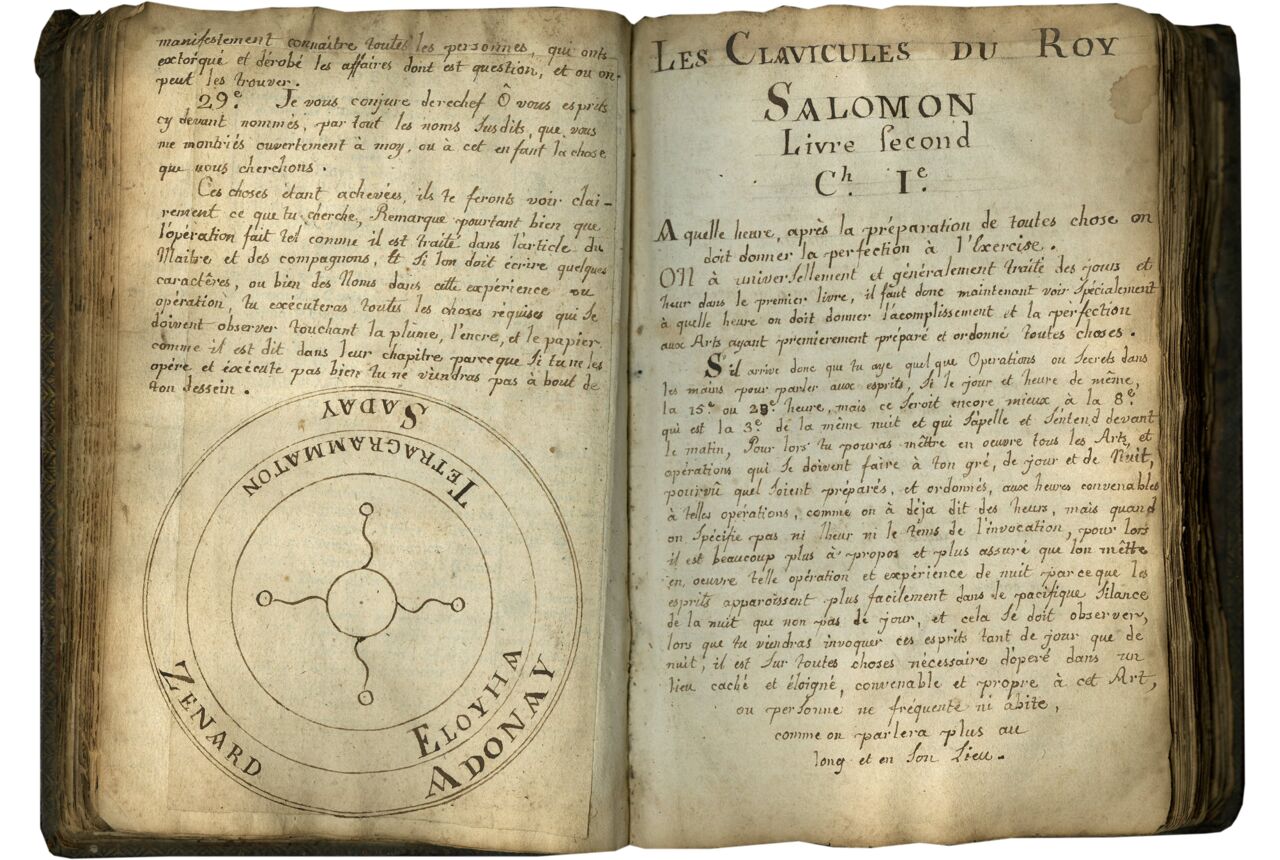 manifestement connaître toutes les personnes, qui ont
extorqué et dérobé les affaires dont est question, et ou on
peut les trouver.
29.e Je vous conjure derechef Ô vous esprits
cy devant nommés, par tout les noms susdits, que vous
me montriés ouvertement à moy, ou à cet enfant la chose
que nous cherchons.
Ces choses étant achevées, ils te feront voir clai-
rement ce que tu cherche, Remarque pourtant bien que
l'opération fait tel comme il est traité dans l'article du
Maitre et des compagnons, Et si lon doit écrire quelques
caractêres, ou bien des Noms dans cette expérience ou
opération, tu exécuteras toutes les choses requises qui se
doivent observer touchant la plume, l'encre, et le papier,
comme il est dit dans leur chapitre parceque si tu ne les
opére et éxécute pas bien tu ne viendras pas à bout de
ton dessein.
SADAY
TETRAGRAMMATON
ZENARD
ELOYHA
ADONAY
LES CLAVICULES DU ROY
SALOMON
Livre second
Ch. I.e
A quelle heure, après la préparation de toutes chose on
doit donner la perfection à l'Exercise.
ON à universellement et généralement traité des jours et
heur dans le premier livre, il faut donc maintenant voir spécialement
à quelle heure on doit donner l'acomplissement et la perfection
aux Arts ayant premierement préparé et ordonné toutes choses.
S'il arrive donc que tu aye quelque Operations ou Secrets dans
les mains pour parler aux esprits, si le jour et heure de même,
la 15.e ou 28.e heure, mais ce seroit encore mieux à la 8.e
qui est la 3.e de la même nuit et qui s'apelle et s'entend devant
le matin, Pour lors tu pouras mêttre en oeuvre tous les Arts, et
opérations qui se doivent faire à ton gré, de jour et de Nuit,
pourvû quel soient préparés, et ordonnés, aux heures convenables
à telles opérations, comme on à déja dit des heurs, mais quand
on spécifie pas ni lheur ni le tems de l'invocation, pour lors
il est beaucoup plus à propos et plus assuré que lon mêtte
en oeuvre telle opération et expérience de nuit parceque les
esprits apparoissent plus facilement dans le pacifique silance
de la nuit que non pas de jour, et cela se doit observer,
lors que tu viendras invoquer ces esprits tant de jour que de
nuit, il est sur toutes choses nécessaire d'opéré dans un
lieu caché et éloigné, convenable et propre à cet Art,
ou personne ne fréquente ni abite,
comme on parlera plus au
long et en son lieu.